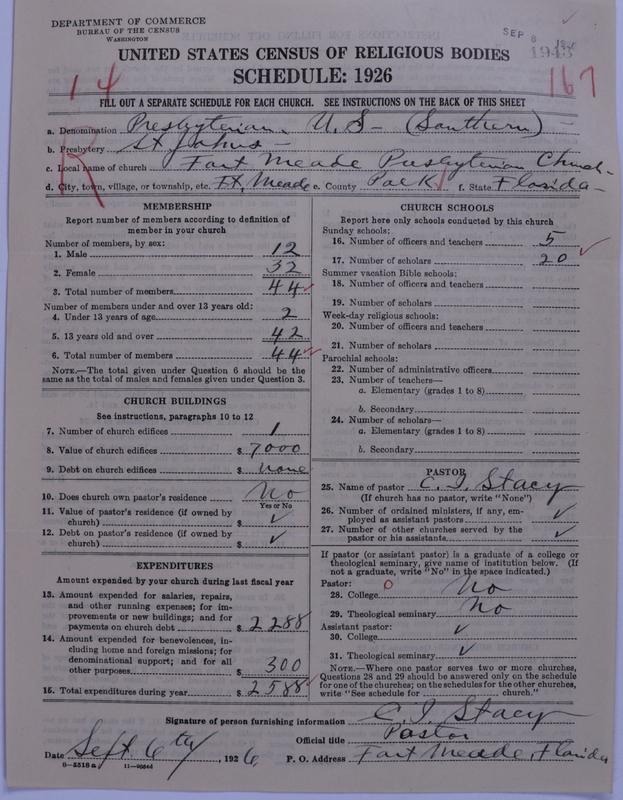 DEPARTMENT OF COMMERCE
BUREAU OF THE CENSUS
WASHINGTON
SEP 8
UNITED STATES CENSUS OF RELIGIOUS BODIES
SCHEDULE: 1926
14
167
FILL OUT A SEPARATE SCHEDULE FOR EACH CHURCH. SEE INSTRUCTIONS ON THE BACK OF THIS SHEET
R
a. Denomination Presbyterian U.S- (Southern)
b. Presbytery St Johns
c. Local name of church Fort Meade Presbyterian Church
d. City, town, village, or township, etc. Ft, Meade e. County Polk f. State Florida
MEMBERSHIP
Report number of members according to definition of
member in your church
Number of members, by sex:
1. Male 12
2. Female 32
3. Total number of members 44
Number of members under and over 13 years old:
4. Under 13 years of age 2
5. 13 years old and over 42
6. Total number of members 44
NOTE.—The total given under Question 6 should be
same as the total of males and females given under Question 3.
CHURCH BUILDINGS
See instructions, paragraphs 10 to 12
7. Number of church edifices 1
8. Value of church edifices $ 7000
9. Debt on church edifices $ none
10. Does church own pastor's residence No
Yes or No
11. Value of pastor's residence (if owned by
church) $ ✓
12. Debt on pastor's residence (if owned by
church) $ ✓
EXPENDITURES
Amount expended by your church during last fiscal year
13. Amount expended for salaries, repairs,
and other running expenses; for im-
provements or new buildings; and for
payments on church debt $ 2288
14. Amount expended for benevolences, in-
cluding home and foreign missions; for
denominational support; and for all
other purposes $ 300
15. Total expenditures during year $ 2588
CHURCH SCHOOLS
Report here only schools conducted by this church
Sunday schools:
16. Number of officers and teachers 5
17. Number of scholars 20
Summer vacation Bible schools:
18. Number of officers and teachers
19. Number of scholars
Week-day religious schools:
20. Number of officers and teachers
21. Number of scholars
Parochial schools:
22. Number of administrative officers
23. Number of teachers—
a. Elementary (grades 1 to 8)
b. Secondary
24. Number of scholars—
a. Elementary (grades 1 to 8)
b. Secondary
PASTOR
25. Name of pastor C. I. Stacy
(If church has no pastor, write "None")
26. Number of ordained ministers, if any, em-
ployed as assistant pastors ✓
27. Number of other churches served by the
pastor or his assistants ✓
If pastor (or assistant pastor) is a graduate of a college or
theological seminary, give name of institution below. (If
not a graduate, write "No" in the space indicated.)
Pastor:
28. College O No
29. Theological seminary No
Assistant pastor:
30. College ✓
31. Theological seminary ✓
NOTE.—Where one pastor serves two or more churches,
Questions 28 and 29 should be answered only on the schedule
for one of the churches; on the schedules for the other churches,
write "See schedule for church."
Signature of person furnishing information C. I. Stacy
Official title Pastor
Date Sept 6th, 1926 P. O. Address Fort Meade, Florida
8-5518a 11-